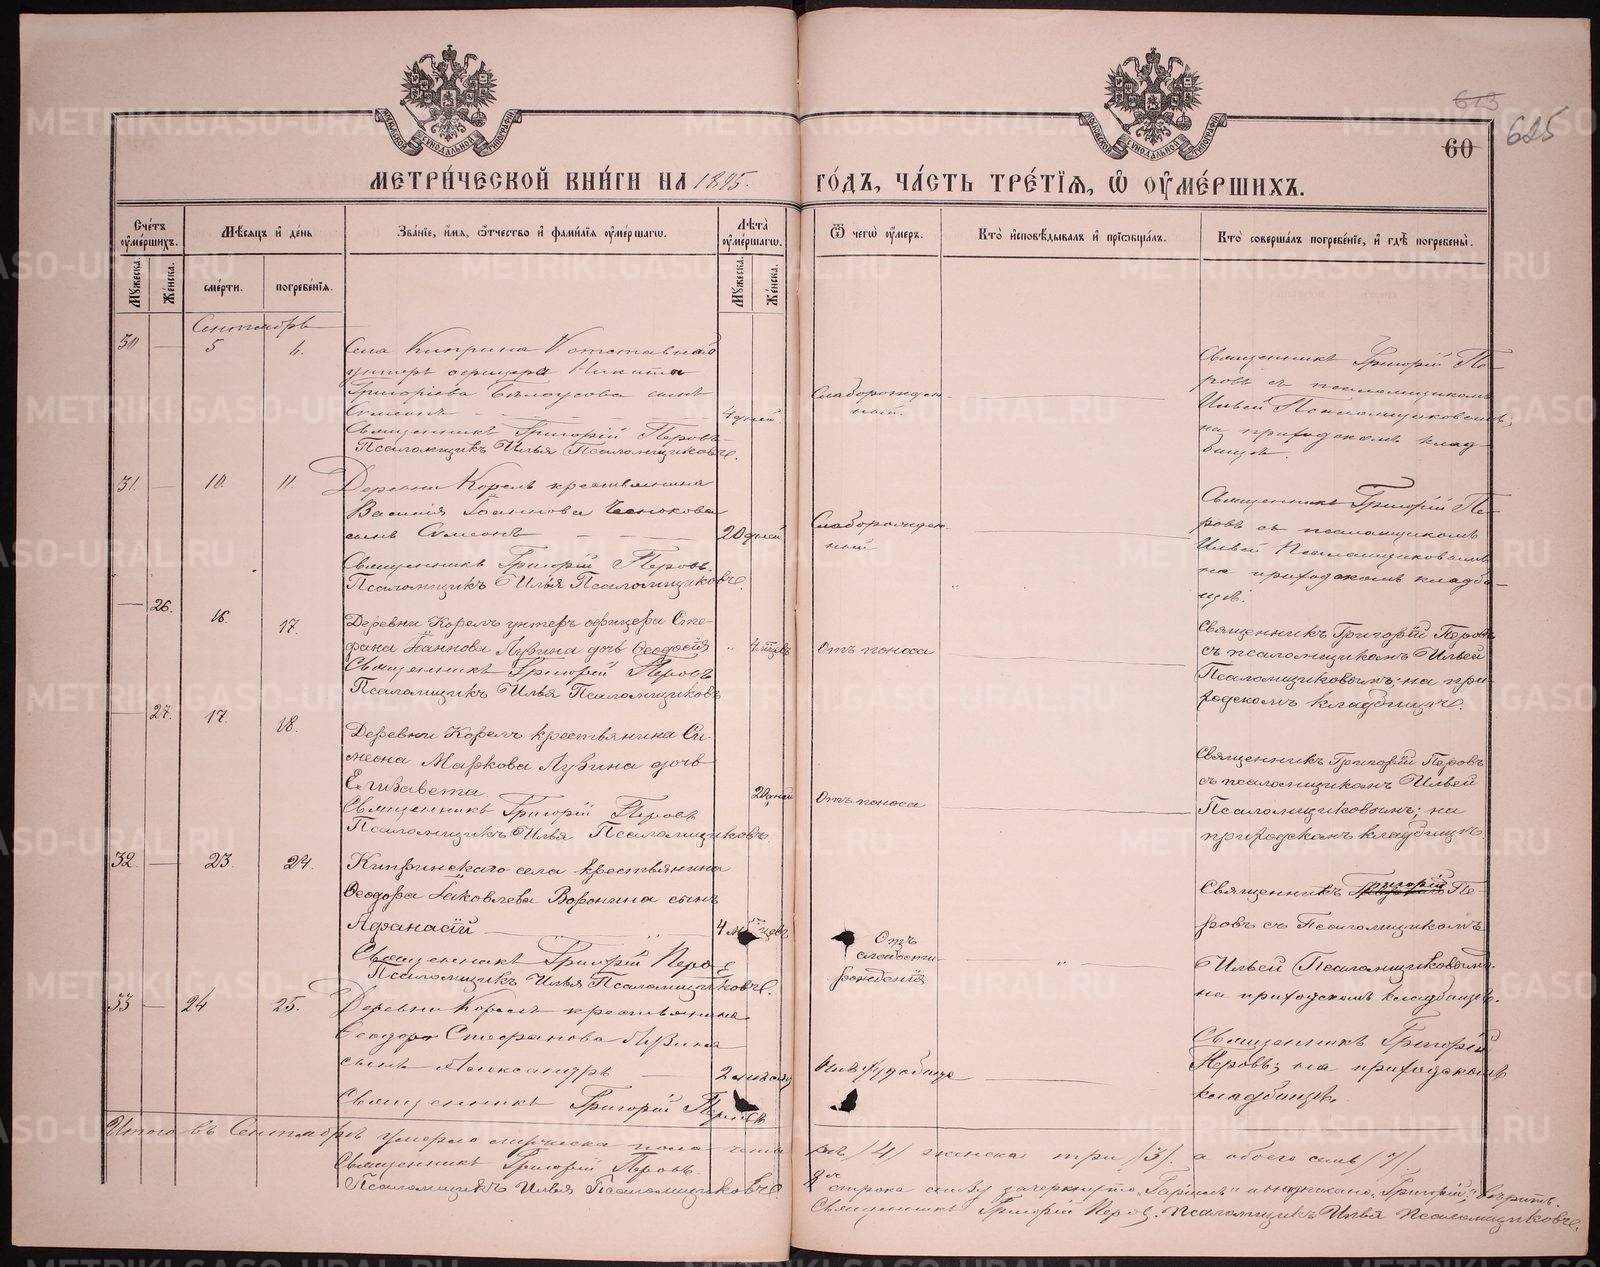 МЕТРИ́ЧЕСКОЙ КНИ́ГИ НА 1895. ГО́ДЪ, ЧА́СТЬ ТРЕ́ТІѦ, Ѽ ОУ҆МЕ́РШИХЪ.
613
625
60
Сче́тъ оу҆ме́ршихъ.
Мꙋ́жеска.
Же́нска.
Мѣ́сѧцъ и҆ де́нь
сме́рти.
погребе́нїѧ.
Зва́нїе, и҆́мѧ, ѻ҆́тчество и҆ фами́лїѧ оу҆ме́ршагѡ.
Лѣ́та оу҆ме́ршагѡ.
Мꙋ́жеска.
Же́нска.
Ѿ чегѡ̀ оу҆́меръ.
Кто̀ и҆сповѣ́дывалъ и҆ прїѡбща́лъ.
Кто̀ соверша́лъ погребе́нїе, и҆ гдѣ̀ погребены̀.
Сентябрь
30 — 5 6.
Села Киприна
унтеръ офицера Никиты
Григоріева Бѣлоусова сынъ
Симеонъ
4 дней.
Священникъ Григорій Перовъ
Псаломщикъ Илья Псаломщиковъ.
Слаборожден-
ный.
Священникъ Григорій Пе-
ровъ съ псаломщикомъ
Ильей Псаломщиковымъ;
на приходскомъ клад-
бищѣ.
31. — 10. 11.
Деревни Корелъ крестьянина
Василія Іоаннова Чеснокова
сынъ Симеонъ
20 дней
Священникъ Григорій Перовъ.
Псаломщикъ Илья Псаломщиковъ.
Слаборожден-
ный
Священникъ Григорій Пе-
ровъ съ псаломщикомъ
Ильей Псаломщиковымъ
на приходскомъ кладби-
щѣ.
— 26. 16. 17.
Деревни Корелъ унтеръ офицера Сте-
фана Іоаннова Лузина дочь Ѳеодосія
4 мѣсяцевъ
Священникъ Григорій Перовъ
Псаломщикъ Илья Псаломщиковъ
Отъ поноса
Священникъ Григорій Перовъ
съ псаломщикомъ Ильей
Псаломщиковымъ; на при-
ходскомъ кладбищѣ.
— 27. 17. 18.
Деревни Корелъ крестьянина Си-
меона Маркова Лузина дочь
Елизавета
20 дней
Священникъ Григорій Перовъ
Псаломщикъ Илья Псаломщиковъ
Отъ поноса
Священникъ Григорій Перовъ
съ псаломщикомъ Ильей
Псаломщиковымъ; на
приходскомъ кладбищѣ
32. — 23. 24.
Кипринскаго села крестьянина
Ѳеодора Іаковлева Воронина сынъ
Аѳанасій
Священникъ Григорій Перовъ
Псаломщикъ Илья Псаломщиковъ.
Отъ
слабости
рожденія
Священникъ Григорій Пе-
ровъ съ Псаломщикомъ
Ильей Псаломщиковымъ.
на приходскомъ кладбищѣ.
33 — 24 25.
Деревни Корелъ крестьянина
Ѳеодора Стефанова Лузина
сынъ Александръ
2 мѣсяц
Священникъ Григорій Перовъ
Священникъ Григорій
Перовъ; на приходскомъ
кладбищѣ.
Итого въ Сентябрѣ умерло мужеска пола четы-
ре /4/ женска три /3/. а обоего семь /7/.
Священникъ Григорій Перовъ.
Псаломщикъ Илья Псаломщиковъ.
строка снизу зачеркнуто и надписано „Григорій“ вѣрить.
Священникъ Григорій Перовъ. Псаломщикъ Илья Псаломщиковъ.